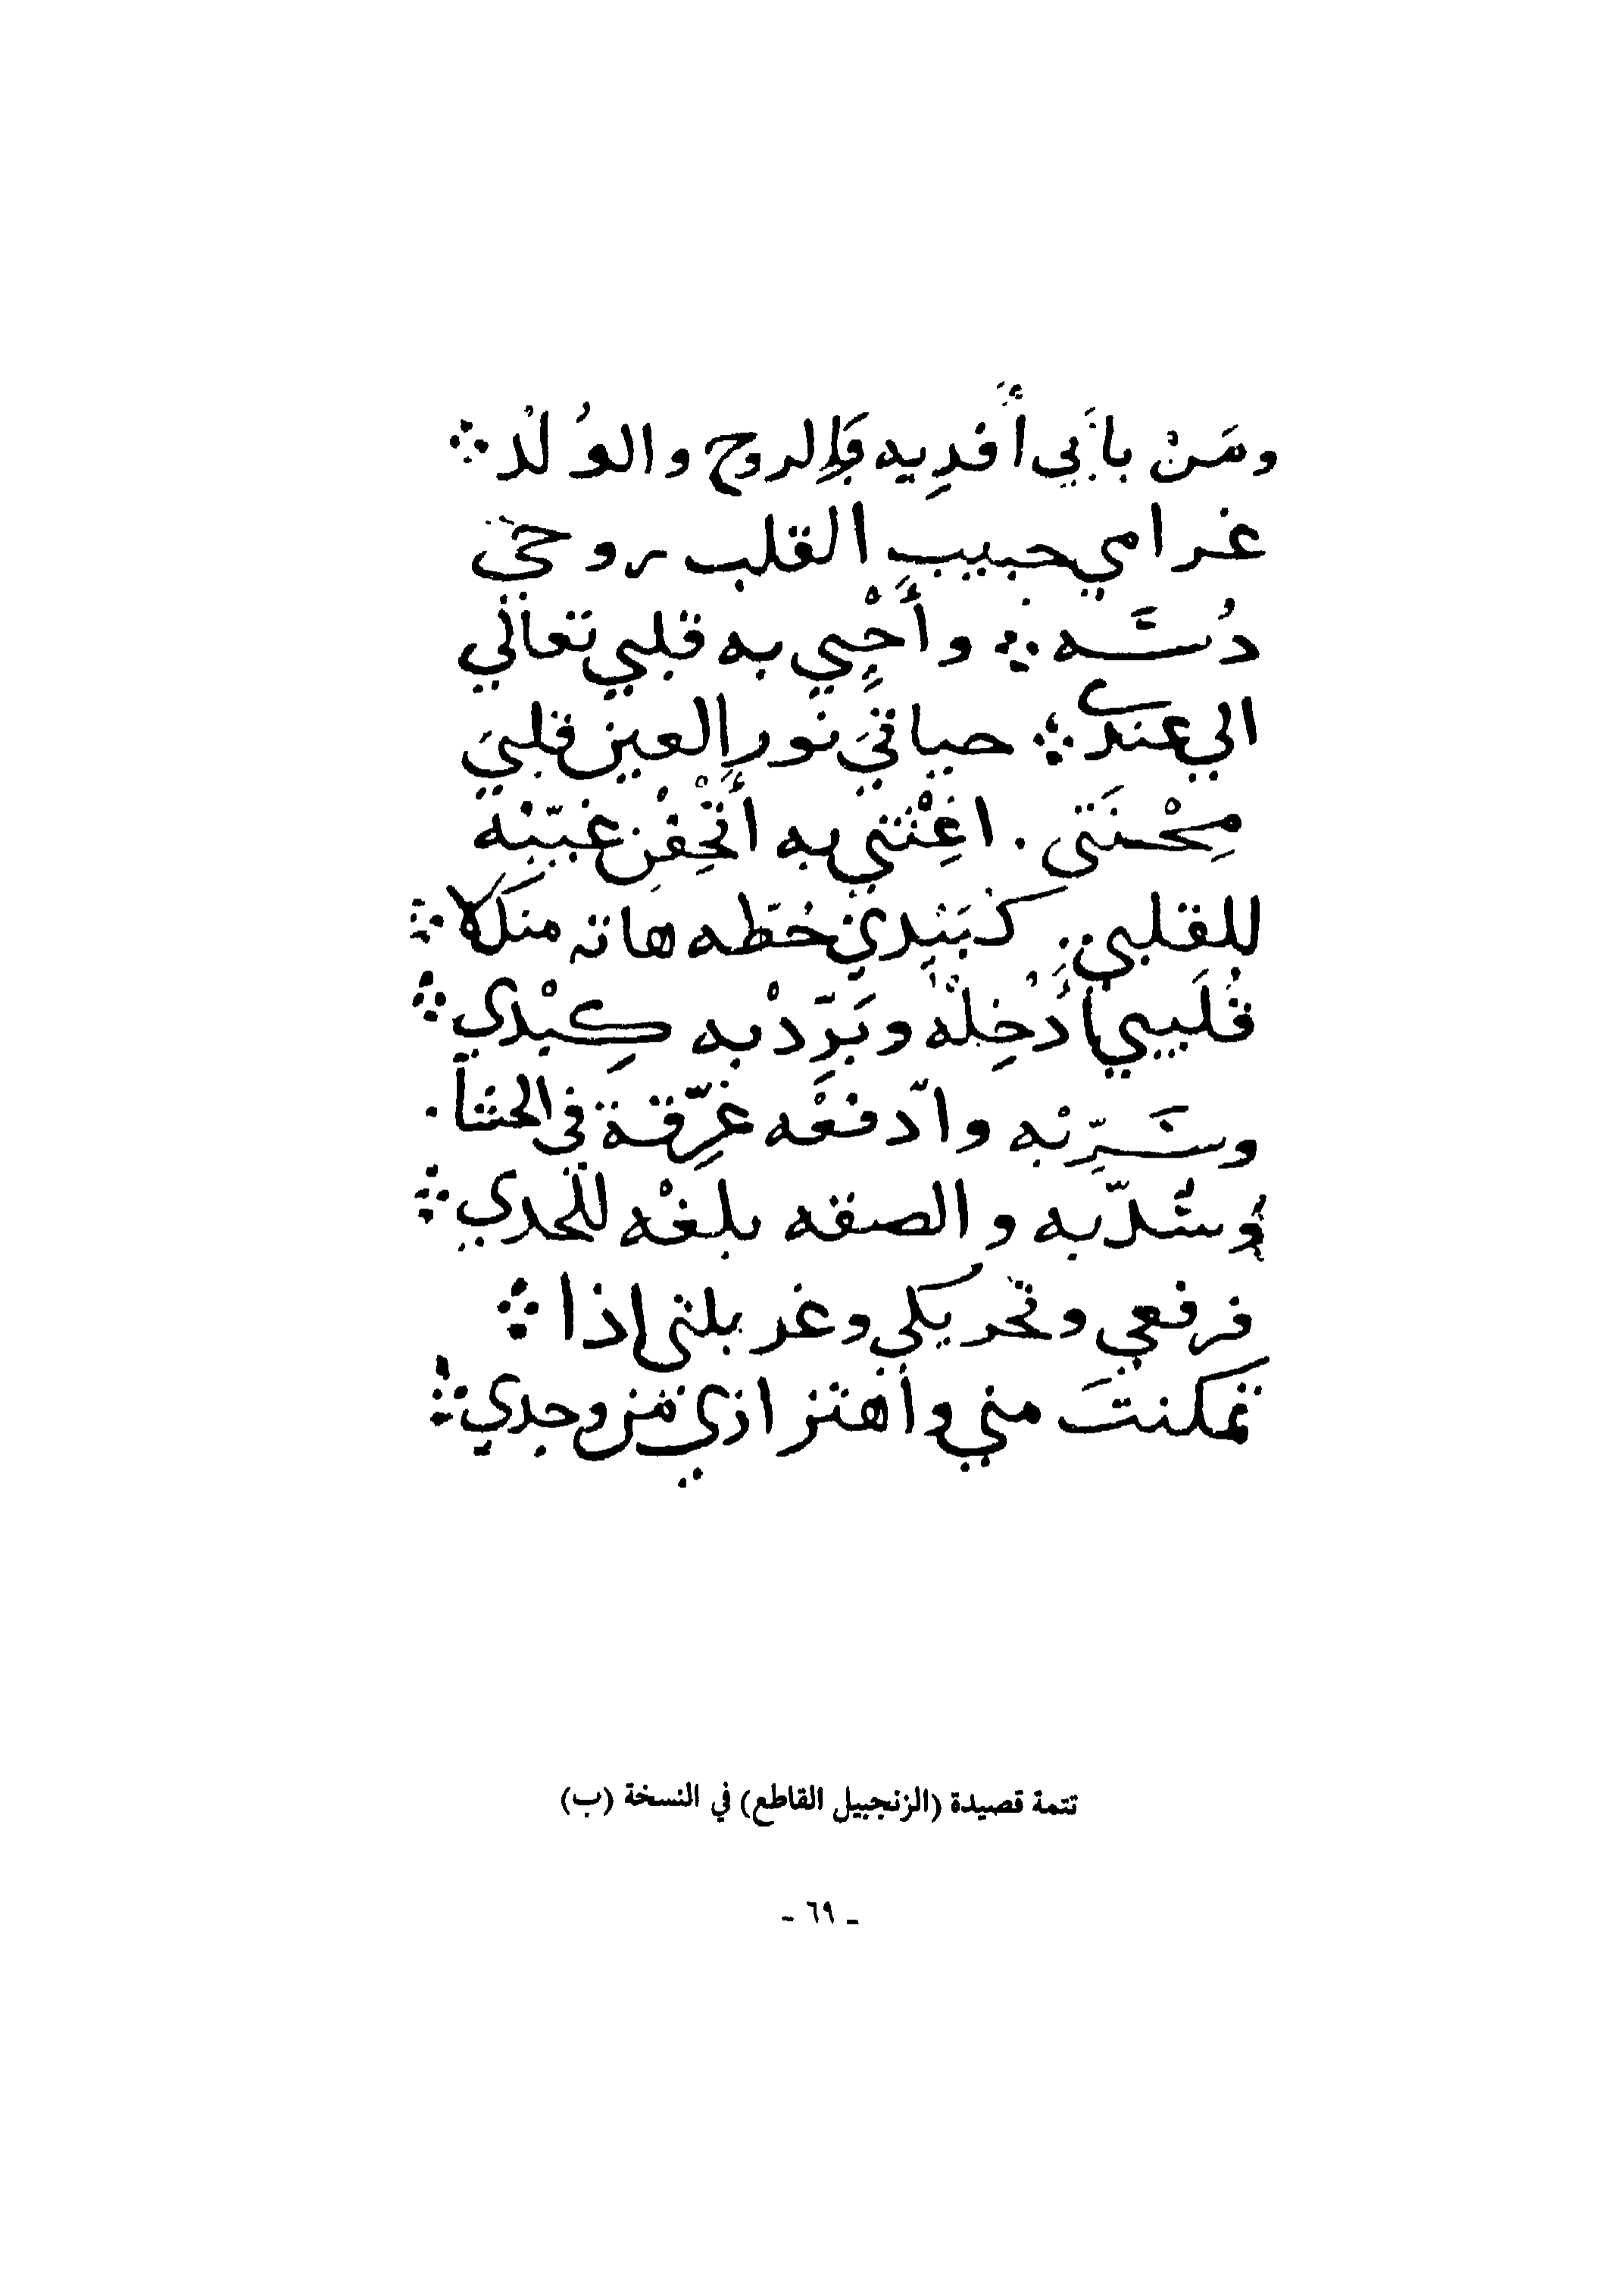 ومَنْ بأبي أَفدِيه وَبالروح والوُلْد ⁘
غرامي حبيبِ القلب روحي
دُسَّه ⁘ وأَحْيِي به قلبي تعالي
الي عندي ⁘ حياتيَ نور العين قلبيَ
مِحْنَتي . اغِثْني به أَتْحِفْنِ غيّبْه
للقلبِ خُطّه هاته منك لا ⁘
قُلَيبي أَدْخِلْهُ وبَرِّدْ به كِبْدي ⁘
وسَرِّبْه وادفعْه غرِّقة في الحشا .
وشدّ به والصقه بلغْه للحدي ⁘
فرفعي وتحريكي وغربلتي إذا ⁘
تمكنتَ مني وأهتزازي من وجدي ⁘
تتمة قصيدة (الزنجبيل القاطع) في النسخة (ب)
ـ ٦٩ ـ